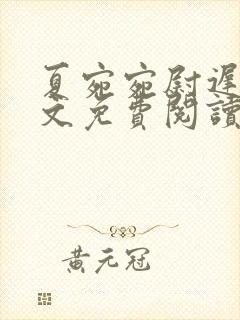 夏宛宛尉遲
文免費閱讀
黃元冠